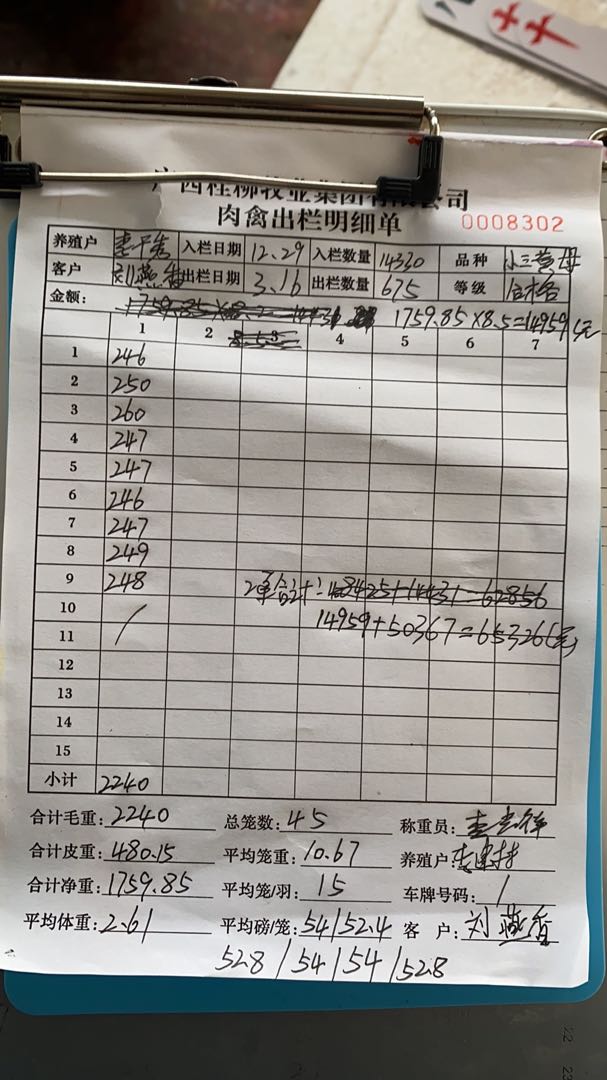 广西桂柳牧业集团有限公司
肉禽出栏明细单 0008302
养殖户 入栏日期 12.29 入栏数量 14330 品种 小三黄母
客户 刘燕香 出栏日期 3.16 出栏数量 675 等级 合格
金额: 1759.85×8.5=14959(元)
1 2 3 4 5 6 7
1 246
2 250
3 260
4 247
5 247
6 246
7 247
8 249
9 248 2单合计:
10 /
11 14959+50367=65326(元)
12
13
14
15
小计 2240
合计毛重: 2240 总笼数: 45 称重员:
合计皮重: 480.15 平均笼重: 10.67 养殖户:
合计净重: 1759.85 平均笼/羽: 15 车牌号码: /
平均体重: 2.61 平均磅/笼: 54/52.4 客 户: 刘燕香
52.8/54/54/52.8